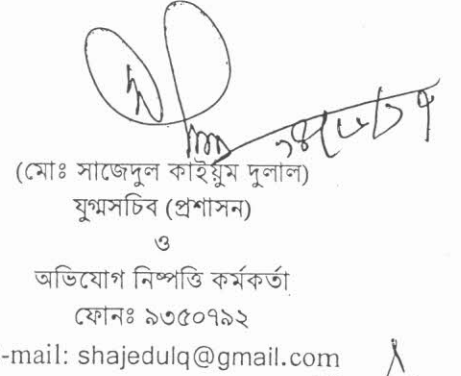 (মোঃ সাজেদুল কাইয়ুম দুলাল)
যুগ্মসচিব (প্রশাসন)
ও
অভিযোগ নিষ্পত্তি কর্মকর্তা
ফোনঃ ৯৩৫০৭৯২
-mail: shajedulq@gmail.com